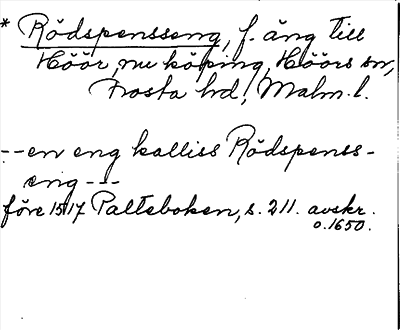 * Rödspensseng, f. äng till
Höör, nu köping, Höörs sn,
Frosta hd, Malm. l.
--en eng kalliss Rödspenss-
eng ---
före 1517 Palteboken, s. 211. avskr.
o. 1650.